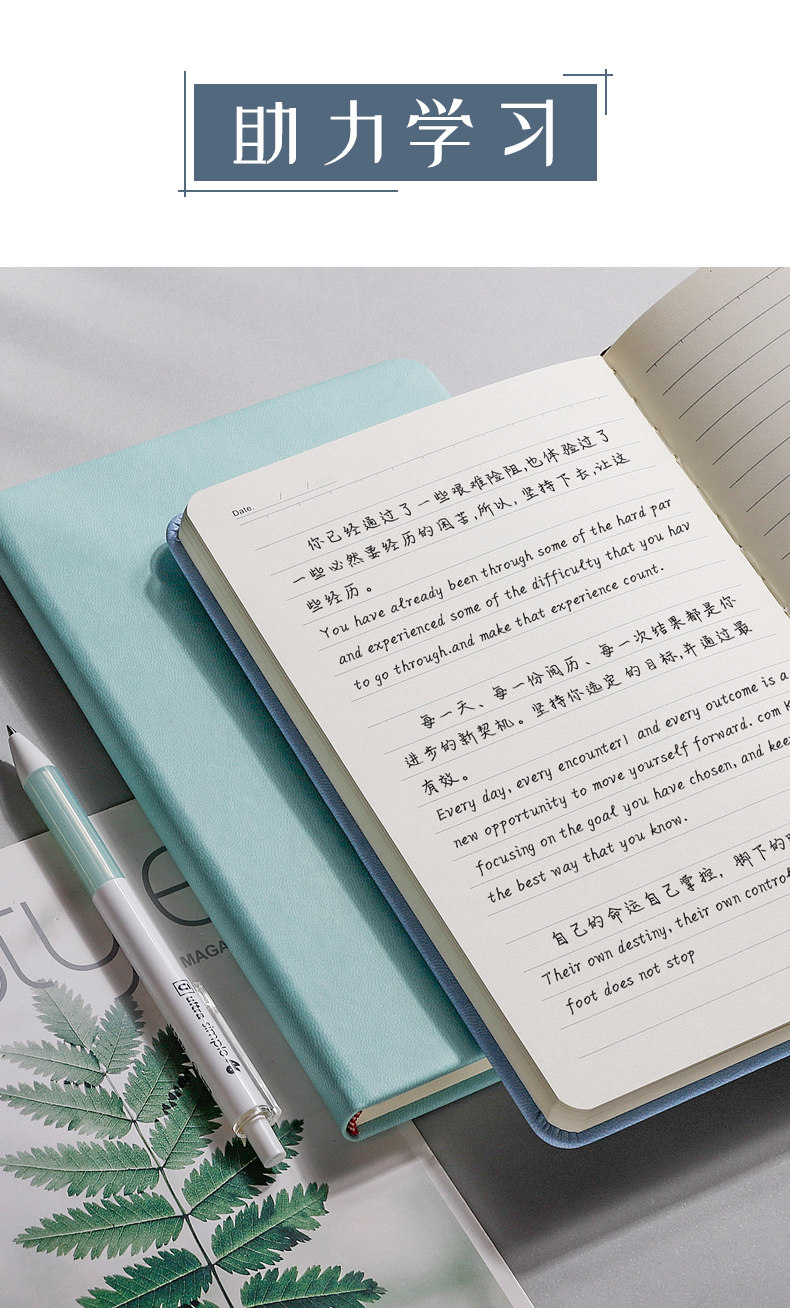 助力学习
Date.
你已经通过了一些艰难险阻,也体验过了
一些必然要经历的困苦,所以,坚持下去,让这
些经历。
You have already been through some of the hard par
and experienced some of the difficulty that you hav
to go through.and make that experience count.
每一天、每一份阅历、每一次结果都是你
进步的新契机。坚持你选定的目标,并通过最
有效。
Every day, every encounter1 and every outcome is a
new opportunity to move yourself forward. com k
focusing on the goal you have chosen, and kee
the best way that you know.
自己的命运自己掌控, 脚下的
Their own destiny, their own control
foot does not stop
MAGA
ultra simple